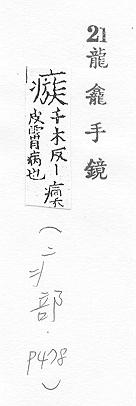 21 龍龕手鏡
瘯千木反丨瘰
皮膚病也
(二疒部. P478)